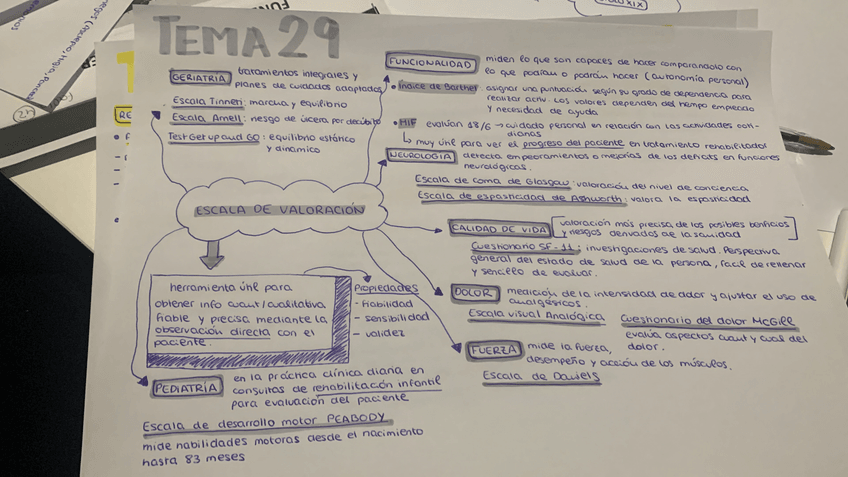 TEMA 29
GERIATRIA
tratamientos integrales y
planes de cuidados adaptados
Escala Tinneri: marcha y equilibrio
Escala Arnell: riesgo de úlcera por decúbito
Test Get up and GO: equilibrio estático
y dinamico
FUNCIONALIDAD
miden lo que son capaces de hacer comparandolo con
lo que podían o podrán hacer (autonomía personal)
Índice de Barthel: asignar una puntuación según su grado de dependencia para
realizar activ. Los valores dependen del tiempo empleado
y necesidad de ayuda
MIF evalúan 18/6 → cuidado personal en relación con las actividades coti-
dianas
↳ muy útil para ver el progreso del paciente en tratamiento rehabilitador
NEUROLOGIA
detecta empeoramientos o mejorías de los deficits en funciones
neurológicas.
Escala de coma de Glasgow: valoración del nivel de conciencia
Escala de espasticidad de Ashworth: valora la espasticidad
ESCALA DE VALORACIÓN
CALIDAD DE VIDA
[valoración más precisa de los posibles benificios
y riesgos derivados de la sanidad]
Cuestionario SF-11: investigaciones de salud. Perspectiva
general del estado de salud de la persona, facil de rellenar
y sencillo de evaluar.
herramienta útil para
obtener info cuant/cualitativa
fiable y precisa mediante la
observación directa con el
paciente.
Propiedades
- fiabilidad
- sensibilidad
- validez
DOLOR
medición de la intensidad de dolor y ajustar el uso de
analgésicos.
Escala visual Analógica
Cuestionario del dolor McGill
evalúa aspectos cuant y cual del
dolor.
FUERZA
mide la fuerza,
desempeño y acción de los músculos.
Escala de Daniels
PEDIATRIA
en la práctica clínica diaria en
consultas de rehabilitación infantil
para evaluación del paciente
Escala de desarrollo motor PEABODY
mide habilidades motoras desde el nacimiento
hasta 83 meses